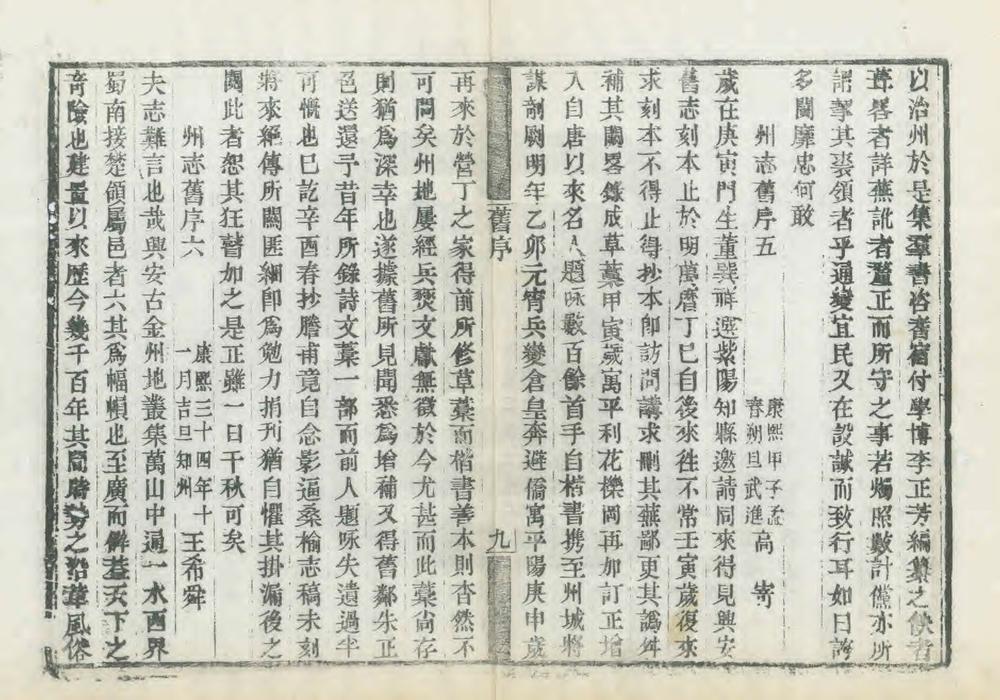 以治州於是集羣書咨耆宿付學博李正芳編纂之缺者
葺畧者詳蕪訛者釐正而所守之事若燭照數計僅亦所
謂挈其裘領者乎通變宜民又在設誠而致行耳如曰誇
多鬭靡忠何敢
州志舊序五 康熙甲子孟春朔旦武進 高寄
歲在庚寅門生董巽祥選紫陽知縣邀請同來得見興安
舊志刻本止於明萬曆丁巳自後來徃不常壬寅歲復來
求刻本不得止得抄本卽訪問講求刪其蕪鄙更其譌舛
補其闕畧錄成草藁甲寅歲寓平利花櫟岡再加訂正增
入自唐以來名人題咏數百餘首手自楷書携至州城將
謀剞劂明年乙卯元宵兵變倉皇奔避僑寓平陽庚申歲
舊序 九
再來於營丁之家得前所修草藁而楷書善本則杳然不
可問矣州地屢經兵燹文獻無徵於今尤甚而此藁尚存
則猶爲深幸也遂據舊所見聞悉爲增補又得舊鄰朱正
邑送還予昔年所錄詩文藁一部而前人題咏失遺過半
可慨也已訖辛酉春抄謄甫竟自念影逼桑榆志稿未刻
將來絕傳所關匪細卽爲勉力捐刋猶自懼其掛漏後之
閱此者恕其狂瞽加之是正雖一日千秋可矣
州志舊序六 康熙三十四年十一月吉旦知州 王希舜
夫志難言也哉興安古金州地叢集萬山中通一水西界
蜀南接楚領屬邑者六其爲幅幀也至廣而僻蓋天下之
奇險也建置以來歷今幾千百年其間時勢之沿革風俗